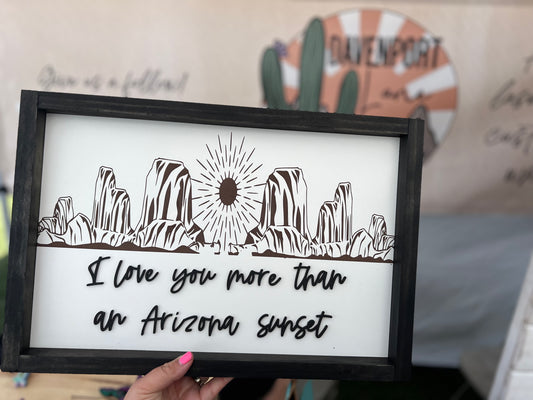 Give us a follow!
DAVENPORT
Lane
I love you more than
an Arizona sunset